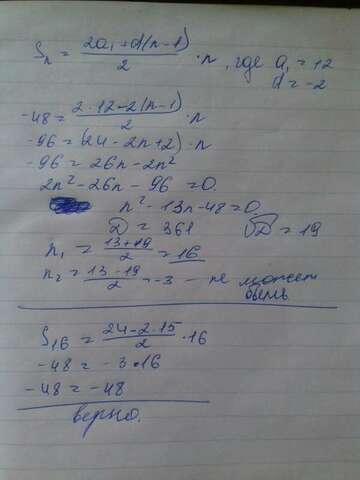 Sn = (2a₁ + d(n-1))/2 · n, где a₁ = 12
d = -2
-48 = (2·12 - 2(n-1))/2 · n
-96 = (24 - 2n + 2) · n
-96 = 26n - 2n²
2n² - 26n - 96 = 0.
n² - 13n - 48 = 0
D = 361 √D = 19
n₁ = (13+19)/2 = 16
n₂ = (13-19)/2 = -3 - не может
быть
S₁₆ = (24 - 2·15)/2 · 16
-48 = -3·16
-48 = -48
верно.